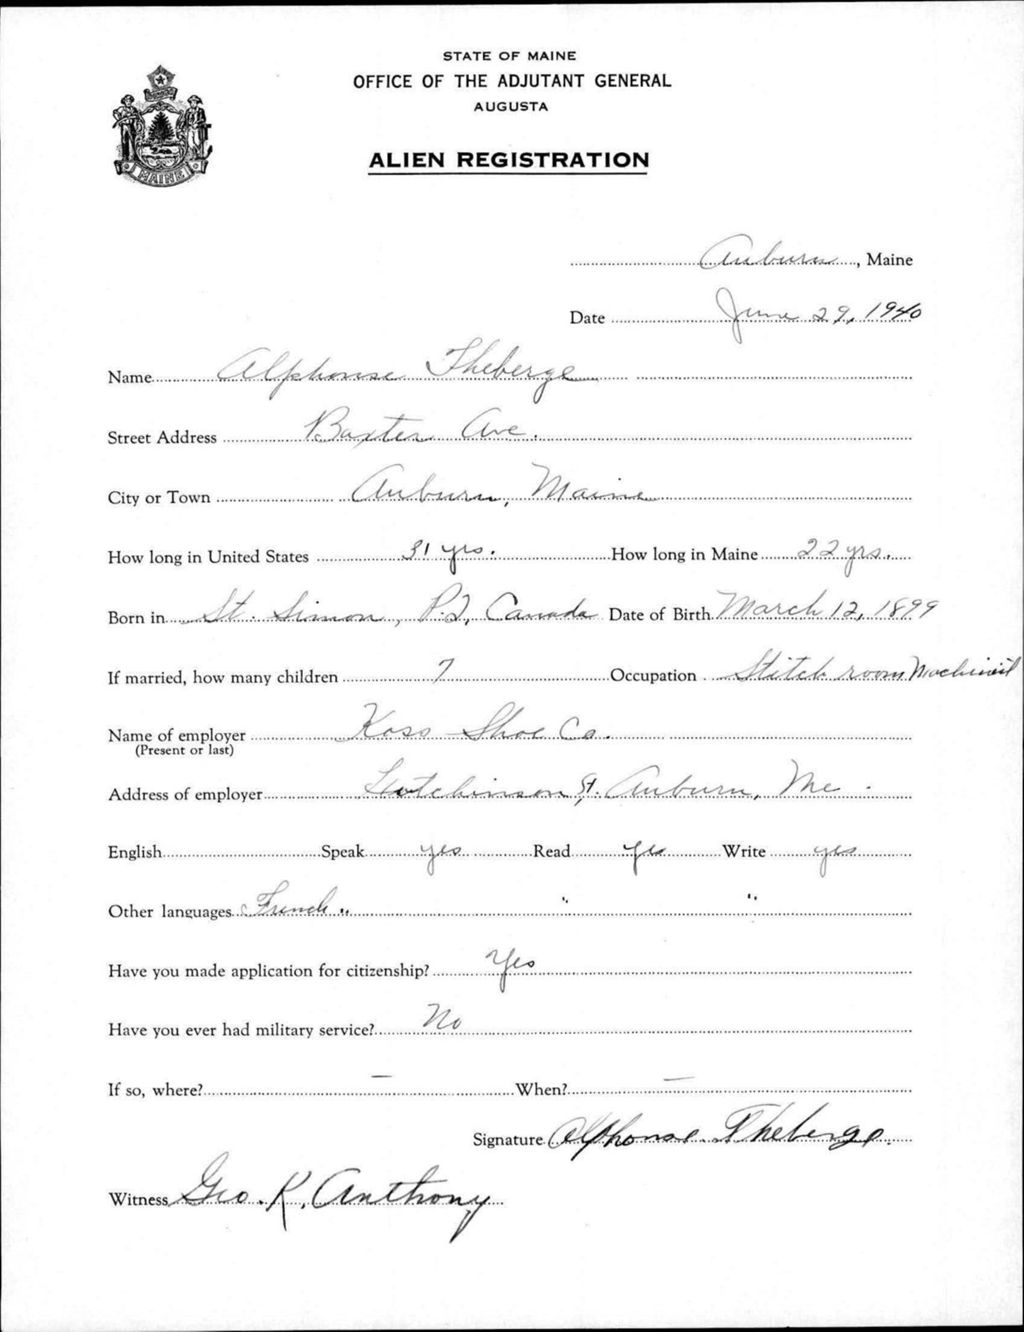 STATE OF MAINE
OFFICE OF THE ADJUTANT GENERAL
AUGUSTA
ALIEN REGISTRATION
MAINE
Auburn, Maine
Date June 29, 1940
Name Alphonse Theberge
Street Address Baxter Ave.
City or Town Auburn, Maine
How long in United States 31 yrs. How long in Maine 22 yrs.
Born in St. Simon, P.Q, Canada Date of Birth March 12, 1899
If married, how many children 7 Occupation Stitch room Machinist
Name of employer Koss Shoe Co.
(Present or last)
Address of employer Hutchinson St. Auburn, Me.
English Speak yes Read yes Write yes
Other languages French " " "
Have you made application for citizenship? Yes
Have you ever had military service? No
If so, where? — When? —
Signature Alphonse Theberge.
Witness Geo. K. Anthony